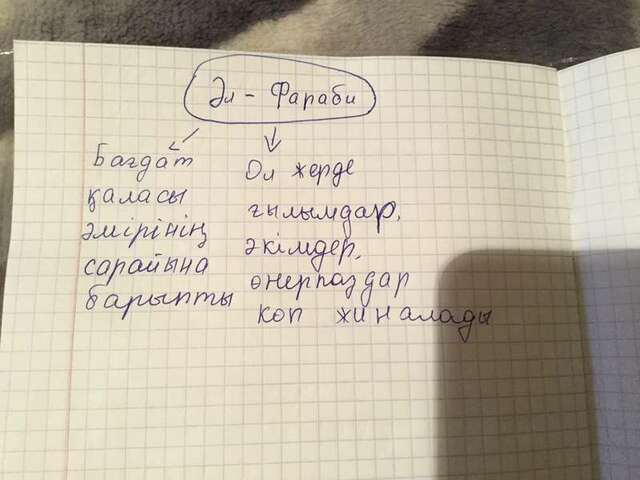 Әл - Фараби
Бағдат
қаласы
әмірінің
сарайына
барыпты
Ол жерде
ғылымдар,
әкімдер,
өнерпаздар
көп жиналады